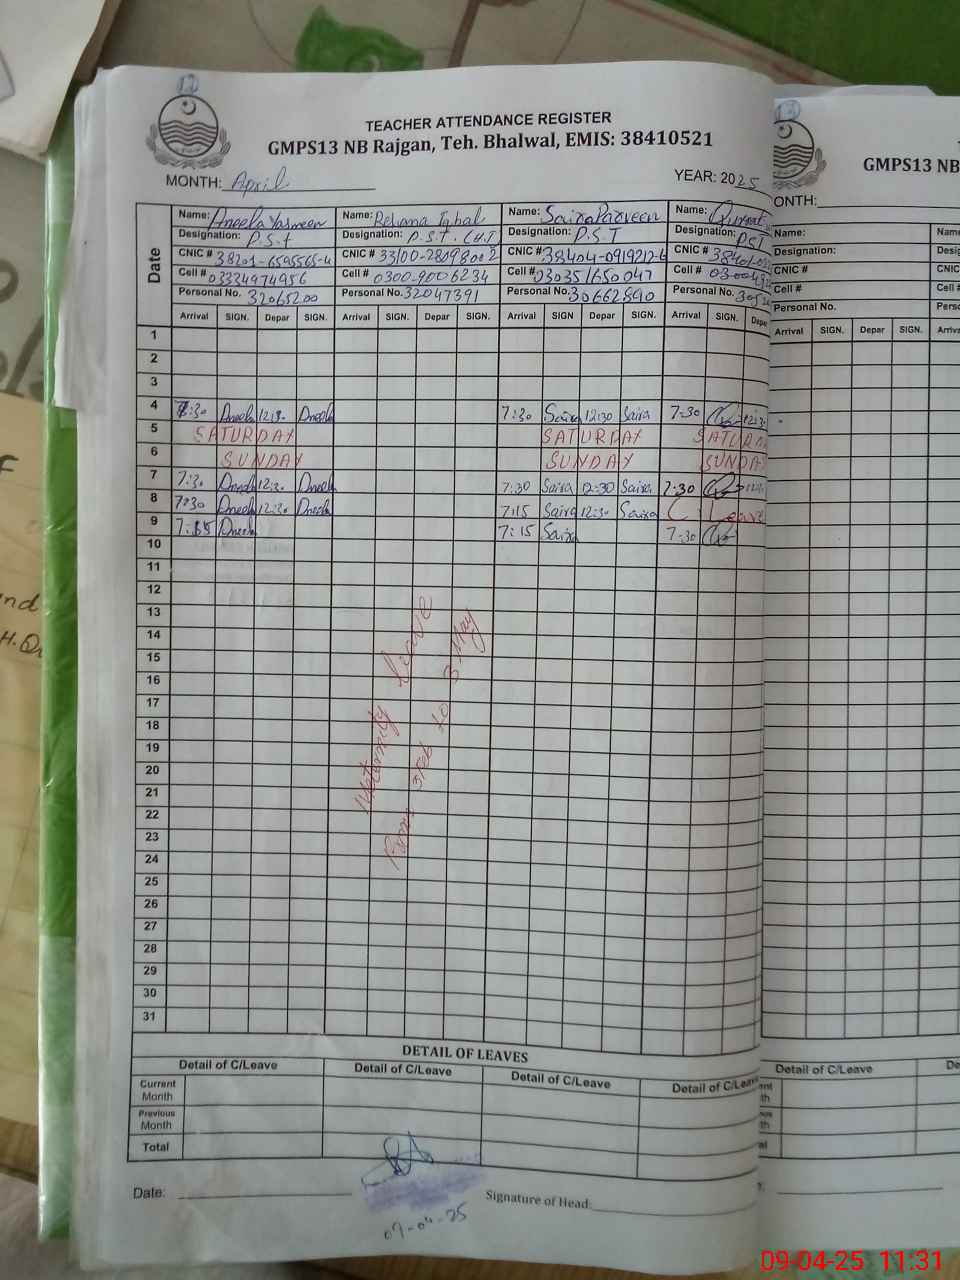 12
TEACHER ATTENDANCE REGISTER
GMPS13 NB Rajgan, Teh. Bhalwal, EMIS: 38410521
MONTH: April YEAR: 2025
Date
Name: Aneela Yasmeen Name: Rehana Iqbal Name: Saira Parveen Name:
Designation: P.S.T Designation: P.S.T. (H.T) Designation: P.S.T Designation: PST
CNIC # 38201-6595565-4 CNIC # CNIC # 38404-0919212-6 CNIC #
Cell # 03334974956 Cell # 0300-9006234 Cell # 030351650047 Cell #
Personal No. 32065200 Personal No. 32047391 Personal No. 30662890 Personal No.
Arrival SIGN. Depar SIGN. Arrival SIGN. Depar SIGN. Arrival SIGN Depar SIGN. Arrival SIGN. Depar
1
2
3
4 7:30 Aneela 12:30 Aneela 7:30 Saira 12:30 Saira 7:30 12:30
5 SATURDAY SATURDAY SATURD
6 SUNDAY SUNDAY SUNDAY
7 7:30 Aneela 12:30 Aneela 7:30 Saira 12:30 Saira 7:30
8 7:30 Aneela 12:30 Aneela 7:15 Saira 12:30 Saira C. Leave
9 Aneela 7:15 Saira 7:30
10
11
12
13
14
15
16
17
18
19
20
21
22
23
24
25
26
27
28
29
30
31
Maternity Leave
From 3 Feb to 3 May
DETAIL OF LEAVES
Detail of C/Leave Detail of C/Leave Detail of C/Leave Detail of C/Leave
Current Month
Previous Month
Total
Date: Signature of Head:
07-04-25
GMPS13 NB
ONTH:
Name: Name
Designation: Desig
CNIC # CNIC
Cell # Cell #
Personal No. Perso
Arrival SIGN. Depar SIGN. Arriva
Detail of C/Leave De
09-04-25 11:31